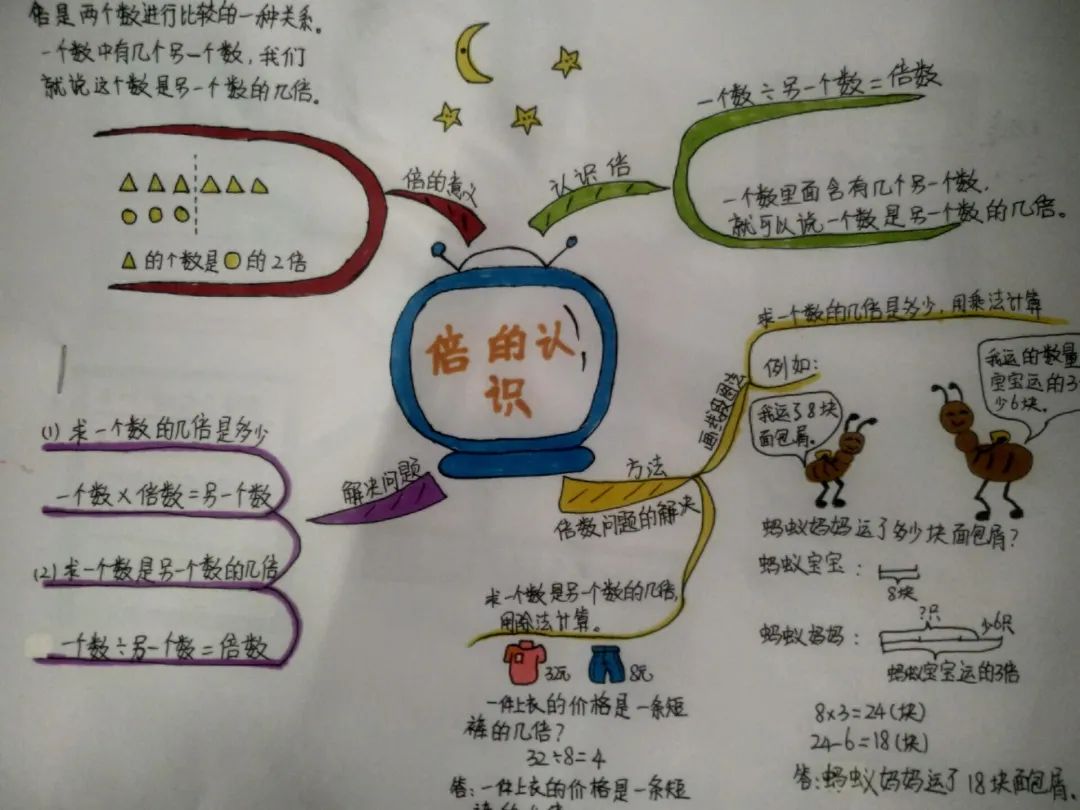 倍是两个数进行比较的一种关系。
一个数中有几个另一个数，我们
就说这个数是另一个数的几倍。
倍的意义
△的个数是○的2倍
认识倍
一个数÷另一个数=倍数
一个数里面含有几个另一个数，
就可以说一个数是另一个数的几倍。
倍的认
识
解决问题
(1) 求一个数的几倍是多少
一个数×倍数=另一个数
(2) 求一个数是另一个数的几倍
一个数÷另一个数=倍数
方法
倍数问题的解决
求一个数的几倍是多少，用乘法计算
例如：
我运了8块
面包屑。
我运的数量
宝宝运的3
少6块。
蚂蚁妈妈运了多少块面包屑？
蚂蚁宝宝：
8块
?只
少6只
蚂蚁妈妈：
蚂蚁宝宝运的3倍
8×3=24(块)
24-6=18(块)
答：蚂蚁妈妈运了18块面包屑。
求一个数是另一个数的几倍，
用除法计算。
32元
8元
一件上衣的价格是一条短
裤的几倍？
32÷8=4
答：一件上衣的价格是一条短